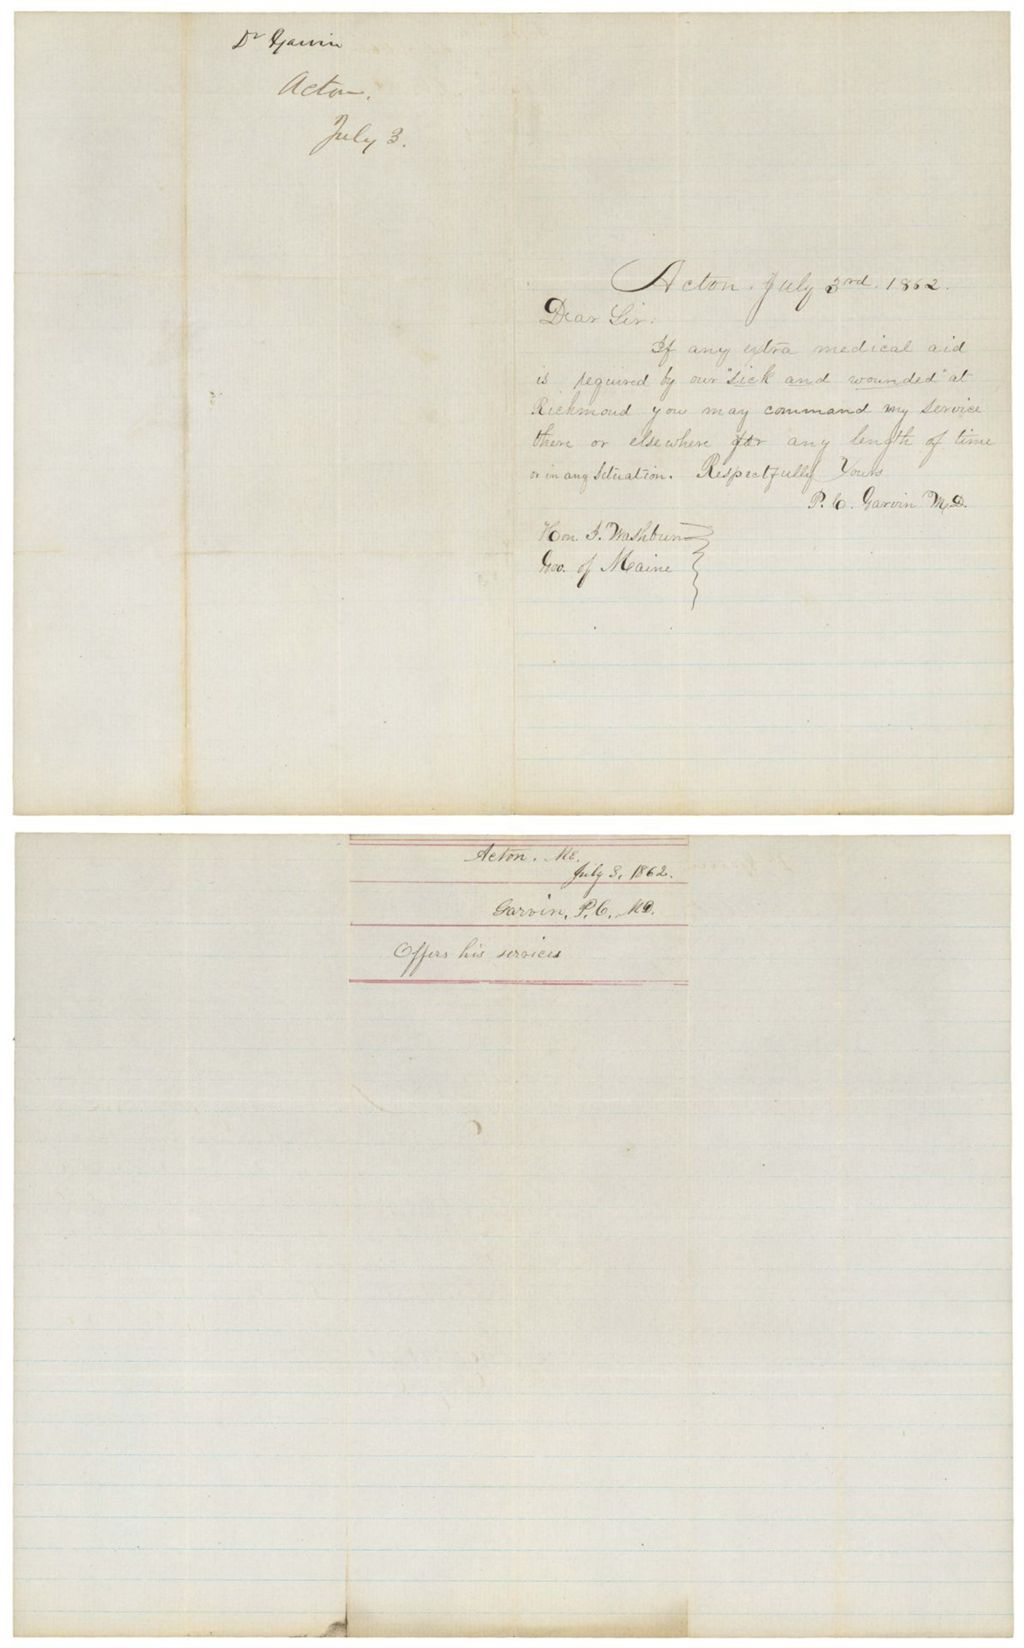 Dr Garvin
Acton.
July 3.
Acton. July 3rd. 1862.
Dear Sir.
If any extra medical aid
is required by our "sick and wounded" at
Richmond you may command my service
there or elsewhere for any length of time
or in any situation. Respectfully Yours
P. C. Garvin M.D.
Hon. I. Washburn
Gov. of Maine
Acton. Me.
July 3, 1862.
Garvin, P. C. MD.
Offers his services